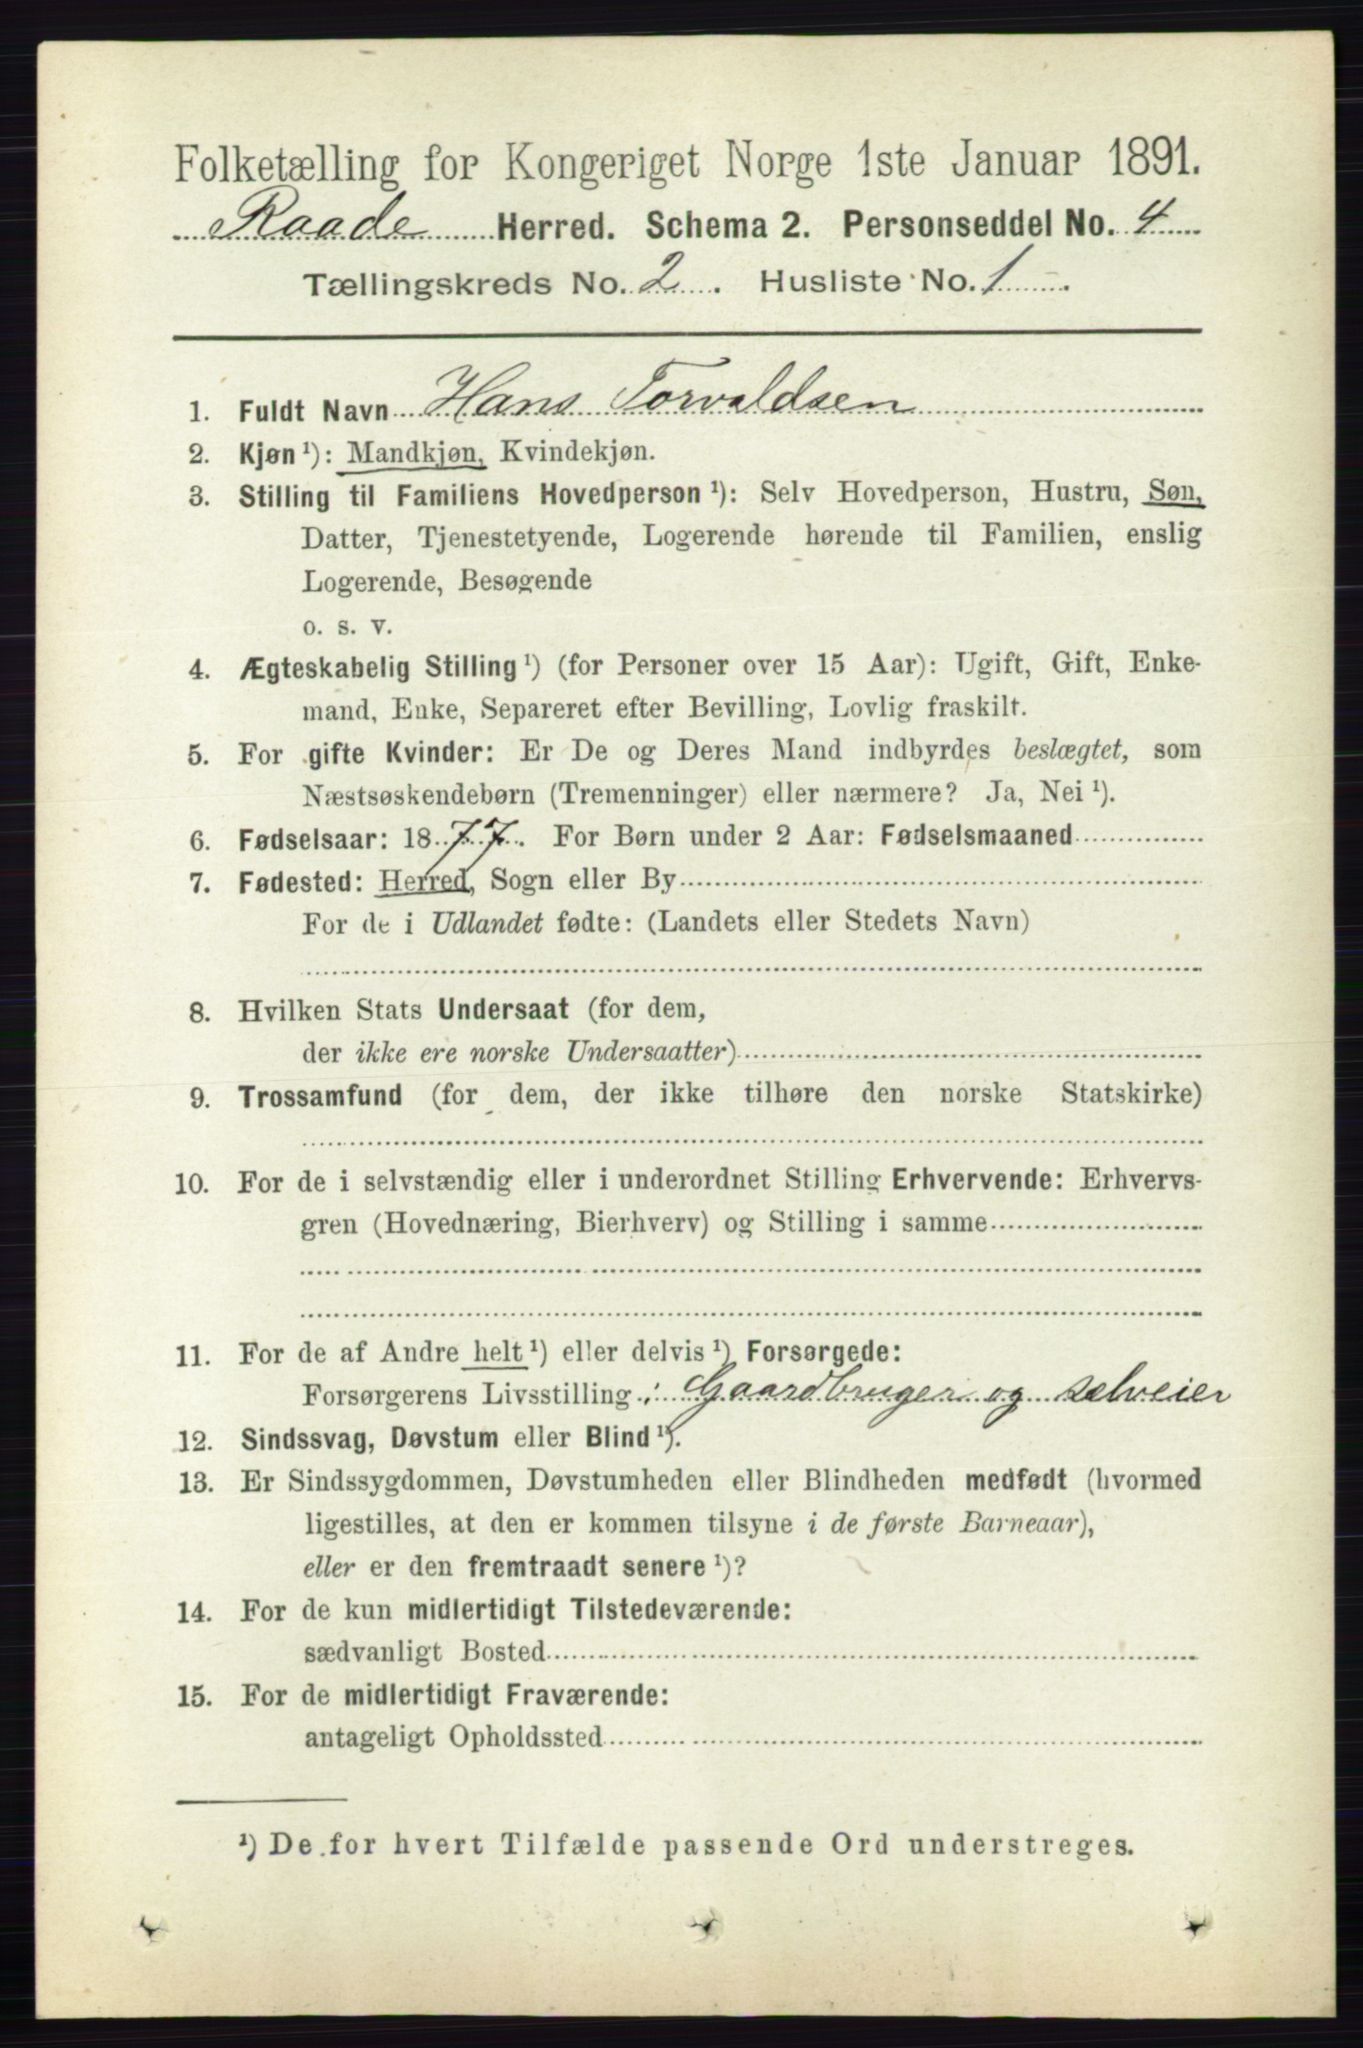 Folketælling for Kongeriget Norge 1ste Januar 1891.
Raade Herred. Schema 2. Personseddel No. 4
Tællingskreds No. 2. Husliste No. 1.
1. Fuldt Navn Hans Torvaldsen
2. Kjøn ¹): Mandkjøn, Kvindekjøn.
3. Stilling til Familiens Hovedperson ¹): Selv Hovedperson, Hustru, Søn,
Datter, Tjenestetyende, Logerende hørende til Familien, enslig
Logerende, Besøgende
o. s. v.
4. Ægteskabelig Stilling ¹) (for Personer over 15 Aar): Ugift, Gift, Enke-
mand, Enke, Separeret efter Bevilling, Lovlig fraskilt.
5. For gifte Kvinder: Er De og Deres Mand indbyrdes beslægtet, som
Næstsøskendebørn (Tremenninger) eller nærmere? Ja, Nei ¹).
6. Fødselsaar: 1877. For Børn under 2 Aar: Fødselsmaaned
7. Fødested: Herred, Sogn eller By
For de i Udlandet fødte: (Landets eller Stedets Navn)
8. Hvilken Stats Undersaat (for dem,
der ikke ere norske Undersaatter)
9. Trossamfund (for dem, der ikke tilhøre den norske Statskirke)
10. For de i selvstændig eller i underordnet Stilling Erhvervende: Erhvervs-
gren (Hovednæring, Bierhverv) og Stilling i samme
11. For de af Andre helt ¹) eller delvis ¹) Forsørgede:
Forsørgerens Livsstilling: Gaardbruger og selveier
12. Sindssvag, Døvstum eller Blind ¹).
13. Er Sindssygdommen, Døvstumheden eller Blindheden medfødt (hvormed
ligestilles, at den er kommen tilsyne i de første Barneaar),
eller er den fremtraadt senere ¹)?
14. For de kun midlertidigt Tilstedeværende:
sædvanligt Bosted
15. For de midlertidigt Fraværende:
antageligt Opholdssted
¹) De for hvert Tilfælde passende Ord understreges.